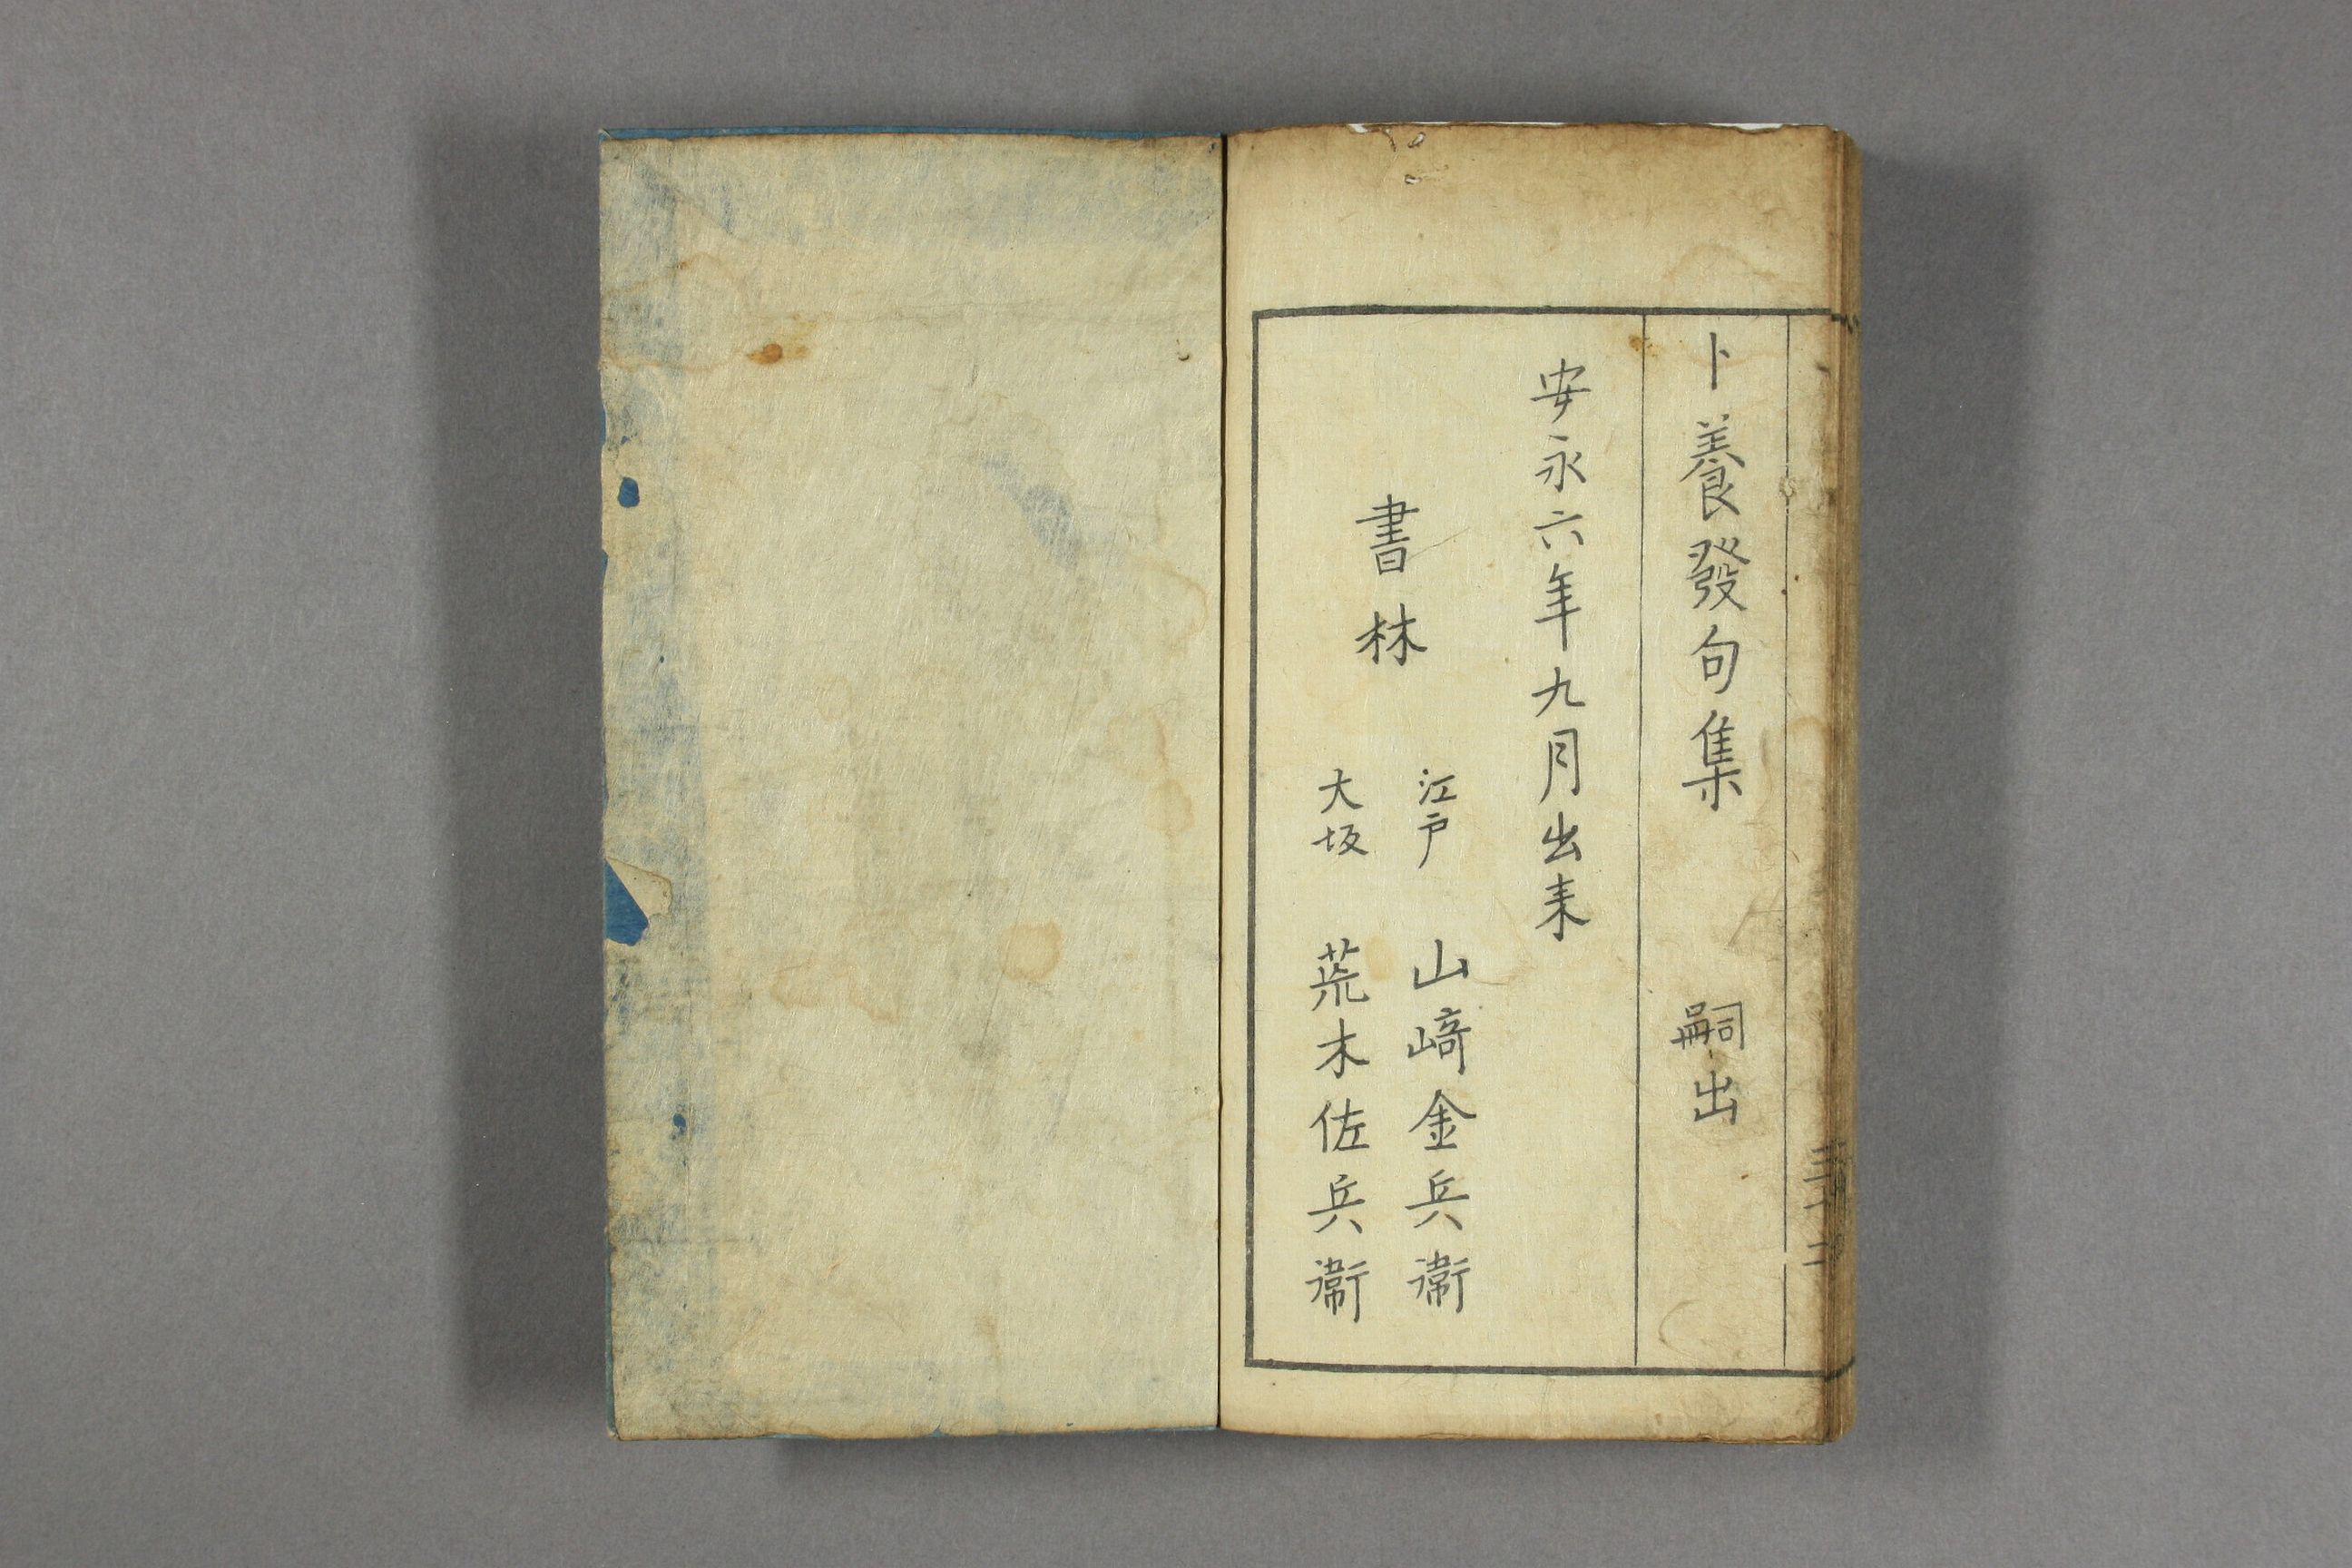 卜養發句集 嗣出
安永六年九月出来
書林
江戸 山﨑金兵衛
大坂 荒木佐兵衛
三十二